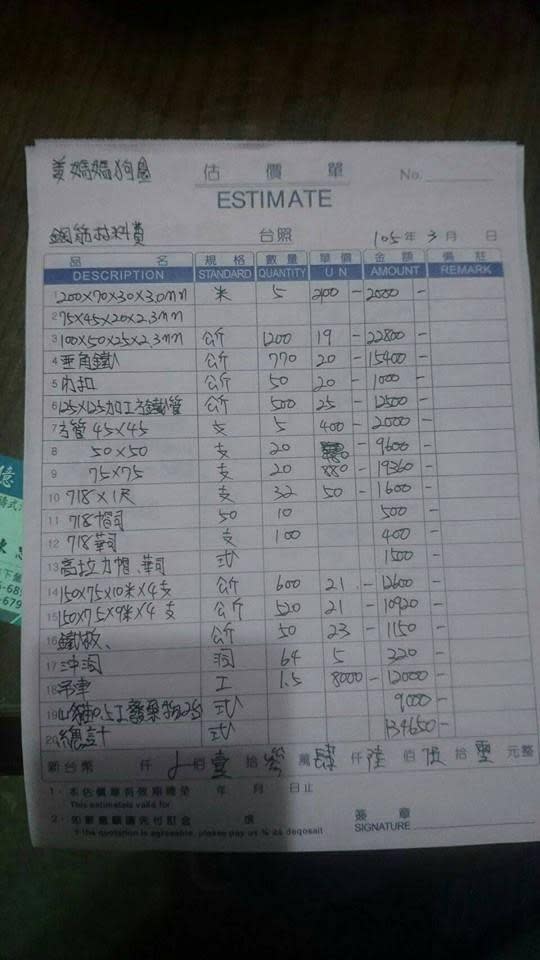 姜媽媽狗園
估價單
No.
ESTIMATE
鋼筋材料費 台照 105年3月 日
品名 規格 數量 單價 金額 備註
DESCRIPTION STANDARD QUANTITY U N AMOUNT REMARK
1 200×70×30×3.0mm 米 5 400 - 2000 -
2 75×45×20×2.3mm
3 100×50×25×2.3mm 公斤 1200 19 - 22800 -
4 垂角鐵 公斤 770 20 - 15400 -
5 內扣 公斤 50 20 - 1000 -
6 125×125加工方鐵管 公斤 500 25 - 12500 -
7 方管 45×45 支 5 400 - 2000 -
8 50×50 支 20 480 - 9600 -
9 75×75 支 20 880 - 19360 -
10 718×1尺 支 32 50 - 1600 -
11 718帽司 50 10 500 -
12 718華司 支 100 400 -
13 高拉力帽、華司 式 1500 -
14 150×75×10米×4支 公斤 600 21 - 12600 -
15 150×75×9米×4支 公斤 520 21 - 10920 -
16 鐵板、 公斤 50 23 - 1150 -
17 沖洞 洞 64 5 320 -
18 吊車 工 1.5 8000 - 12000 -
19 山貓0.5工 式 9000 -
20 總計 式 134650 -
新台幣 仟 佰壹拾參萬肆仟陸佰伍拾零元整
1．本估價單有效期達至 年 月 日止
This estimate is valid for
2．如蒙惠顧請先付訂金
If the quotation is agreeable, please pay us % as deposit
簽章
SIGNATURE